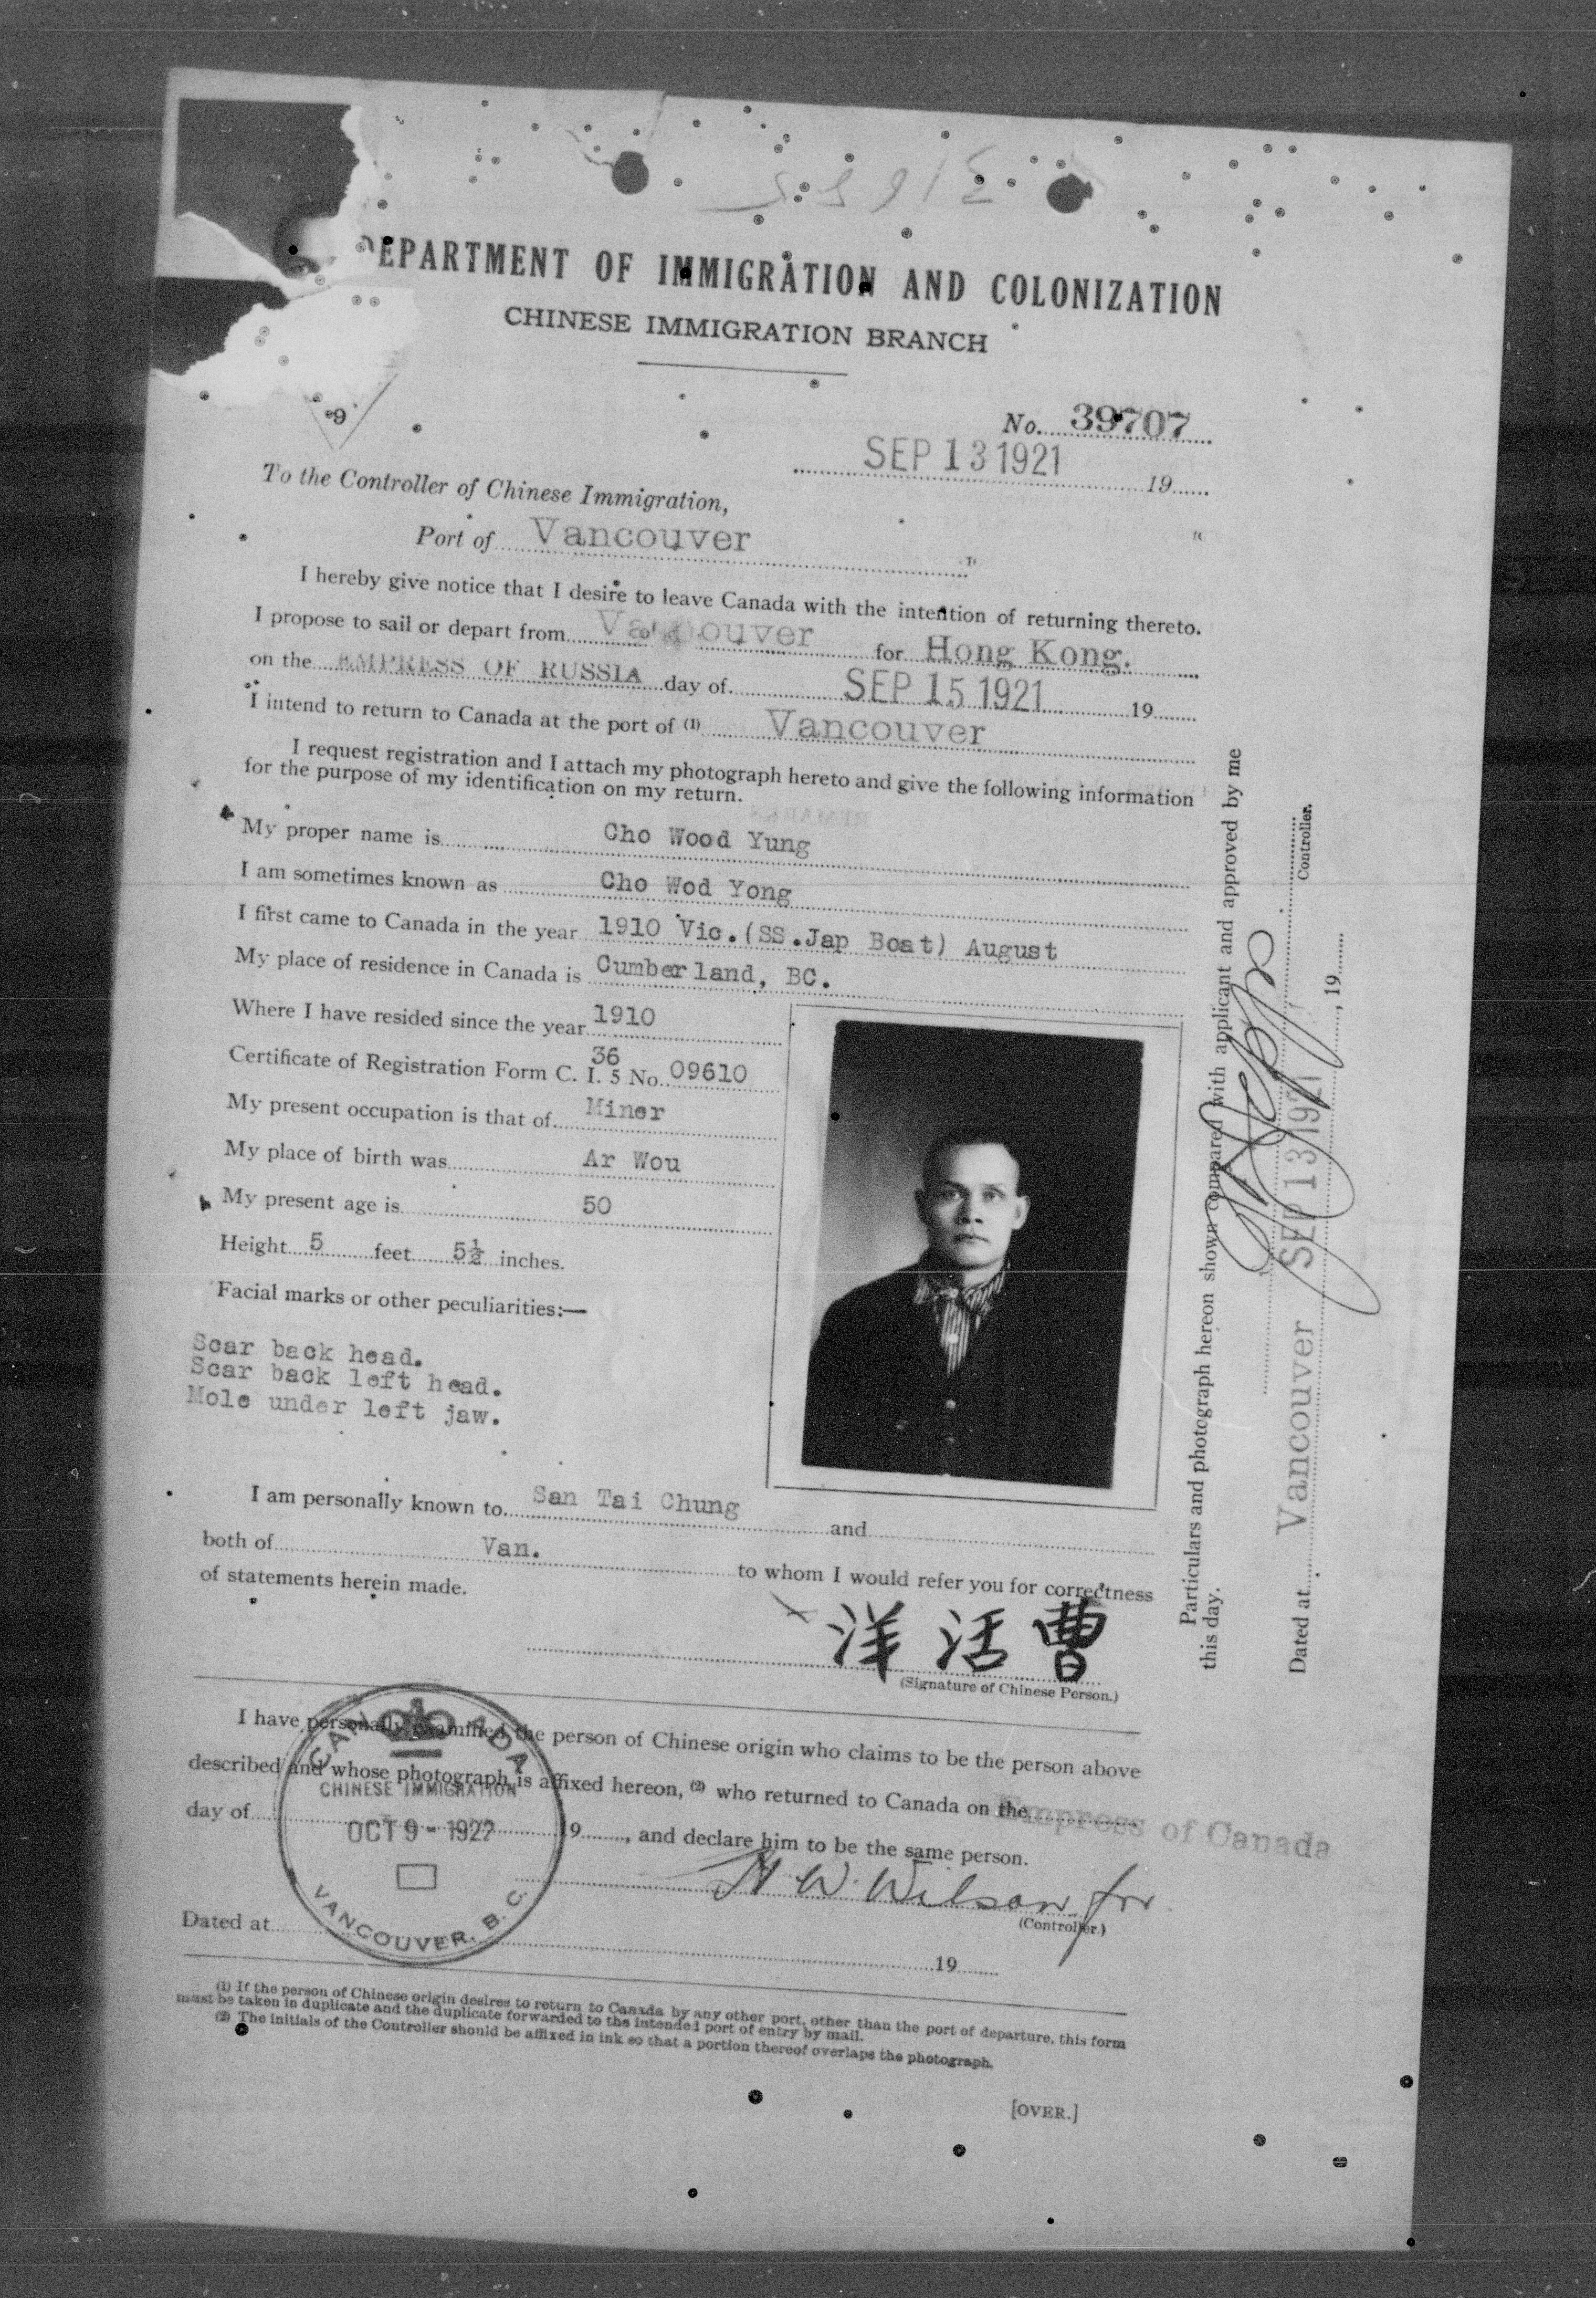 DEPARTMENT OF IMMIGRATION AND COLONIZATION
CHINESE IMMIGRATION BRANCH
No. 39707
SEP 13 1921 19
To the Controller of Chinese Immigration,
Port of Vancouver
I hereby give notice that I desire to leave Canada with the intention of returning thereto.
I propose to sail or depart from Vancouver for Hong Kong.
on the EMPRESS OF RUSSIA day of SEP 15 1921 19
I intend to return to Canada at the port of (1) Vancouver
I request registration and I attach my photograph hereto and give the following information
for the purpose of my identification on my return.
My proper name is Cho Wood Yung
I am sometimes known as Cho Wod Yong
I first came to Canada in the year 1910 Vic.(SS.Jap Boat) August
My place of residence in Canada is Cumberland, BC.
Where I have resided since the year 1910
36
Certificate of Registration Form C. I. 5 No. 09610
My present occupation is that of Miner
My place of birth was Ar Wou
My present age is 50
Height 5 feet 5½ inches.
Facial marks or other peculiarities:—
Scar back head.
Scar back left head.
Mole under left jaw.
I am personally known to San Tai Chung and
both of Van. to whom I would refer you for correctness
of statements herein made.
洋活曹
(Signature of Chinese Person.)
I have personally examined the person of Chinese origin who claims to be the person above
described and whose photograph is affixed hereon, (2) who returned to Canada on the Empress of Canada
day of 19, and declare him to be the same person.
H W. Wilson for
(Controller.)
Dated at 19
CANADA
CHINESE IMMIGRATION
OCT 9 - 1922
VANCOUVER. B. C.
(1) If the person of Chinese origin desires to return to Canada by any other port, other than the port of departure, this form
must be taken in duplicate and the duplicate forwarded to the intended port of entry by mail.
(2) The initials of the Controller should be affixed in ink so that a portion thereof overlaps the photograph.
[OVER.]
Particulars and photograph hereon shown compared with applicant and approved by me
this day.
Controller.
Dated at Vancouver SEP 13 1921, 19